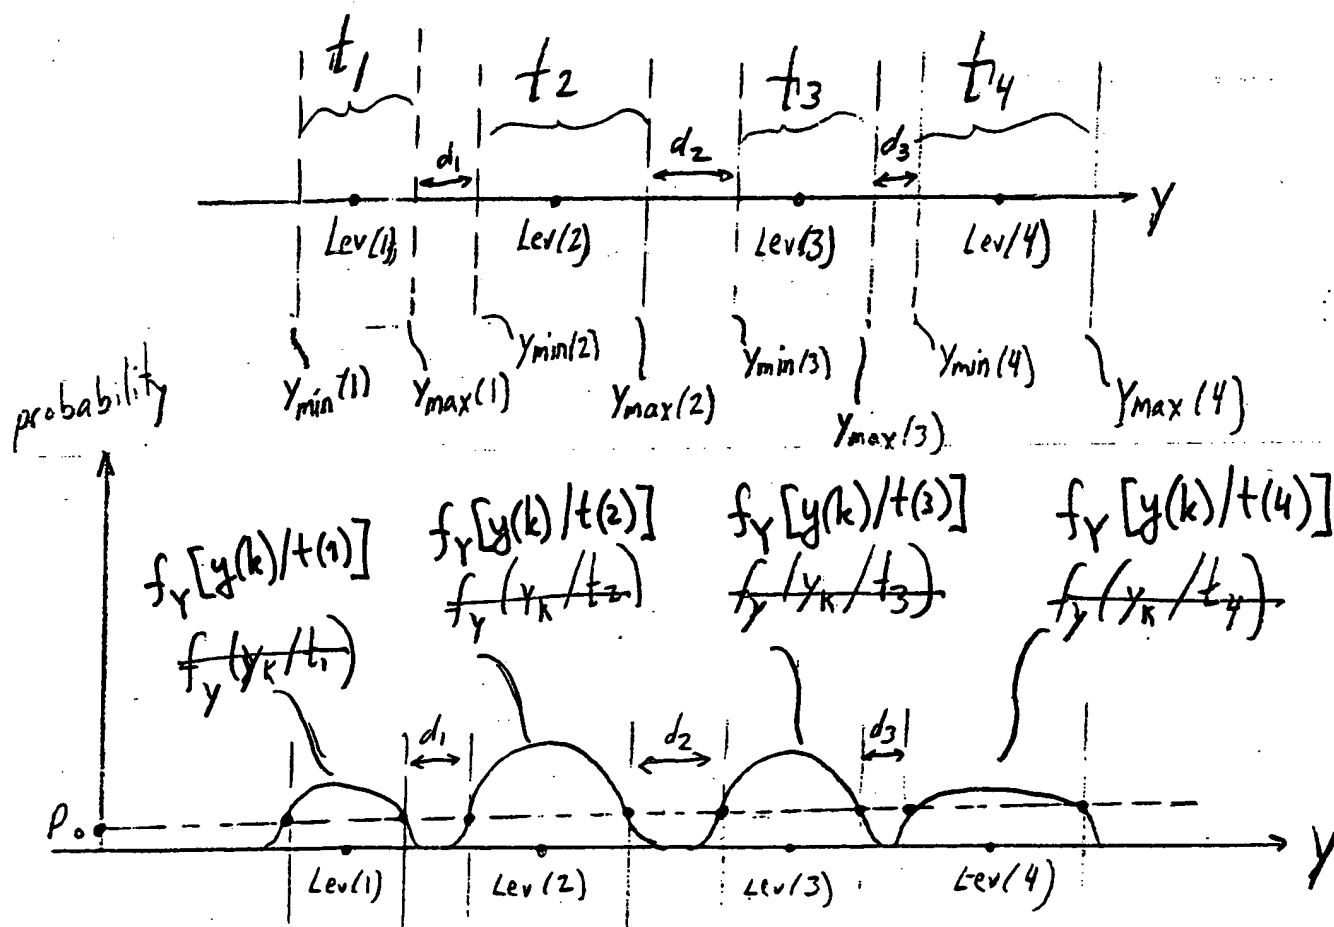 t1 t2 t3 t4
d1 d2 d3
y
Lev(1) Lev(2) Lev(3) Lev(4)
ymin(1) ymax(1) ymin(2) ymax(2) ymin(3) ymax(3) ymin(4) ymax(4)
probability
fY[y(k)/t(1)] fY[y(k)/t(2)] fY[y(k)/t(3)] fY[y(k)/t(4)]
fy(yk/t1) fy(yk/t2) fy(yk/t3) fy(yk/t4)
d1 d2 d3
Po
y
Lev(1) Lev(2) Lev(3) Lev(4)